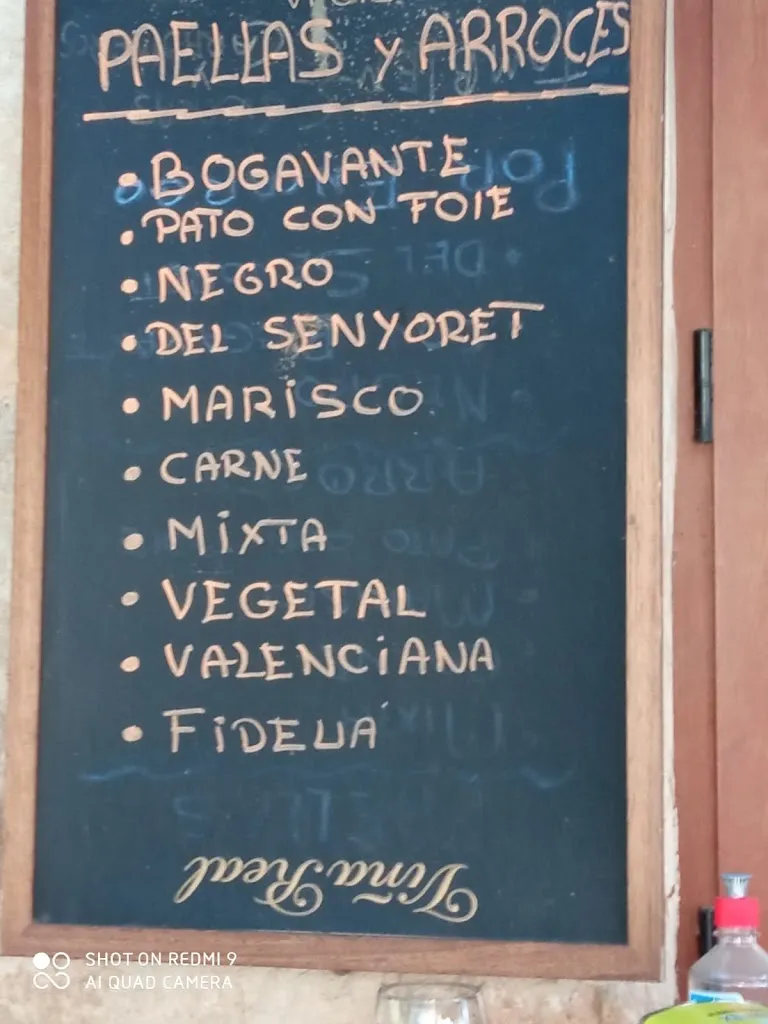 PAELLAS y ARROCES
• BOGAVANTE
• PATO CON FOIE
• NEGRO
• DEL SENYORET
• MARISCO
• CARNE
• MIXTA
• VEGETAL
• VALENCIANA
• FIDEUÁ
Viña Real
SHOT ON REDMI 9
AI QUAD CAMERA